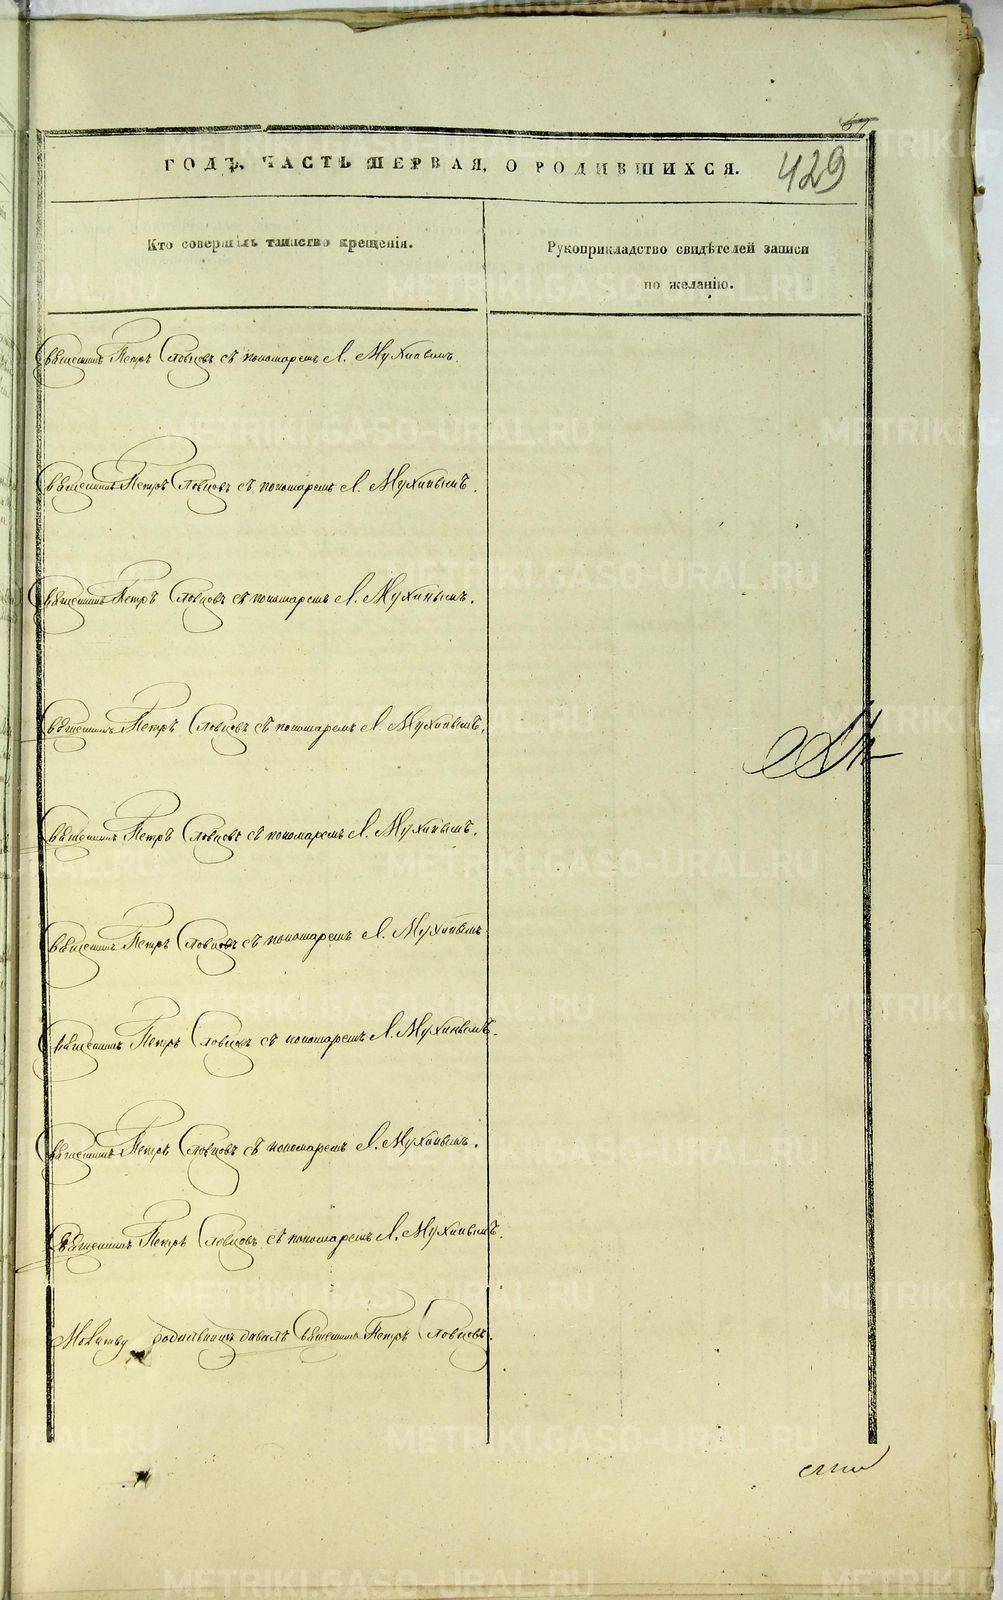 67
429
ГОДЪ, ЧАСТЬ ПЕРВАЯ, О РОДИВШИХСЯ.
Кто совершилъ таинство крещенія.
Рукоприкладство свидѣтелей записи
по желанію.
Священникъ Петръ Словцовъ съ пономаремъ Л. Мухинымъ.
Священникъ Петръ Словцовъ съ пономаремъ Л. Мухинымъ.
Священникъ Петръ Словцовъ съ пономаремъ Л. Мухинымъ.
Священникъ Петръ Словцовъ съ пономаремъ Л. Мухинымъ.
Священникъ Петръ Словцовъ съ пономаремъ Л. Мухинымъ.
Священникъ Петръ Словцовъ съ пономаремъ Л. Мухинымъ.
Священникъ Петръ Словцовъ съ пономаремъ Л. Мухинымъ.
Священникъ Петръ Словцовъ съ пономаремъ Л. Мухинымъ.
Священникъ Петръ Словцовъ съ пономаремъ Л. Мухинымъ.
Молитву родильницѣ давалъ Священникъ Петръ Словцовъ.
METRIKI.GASO-URAL.RU